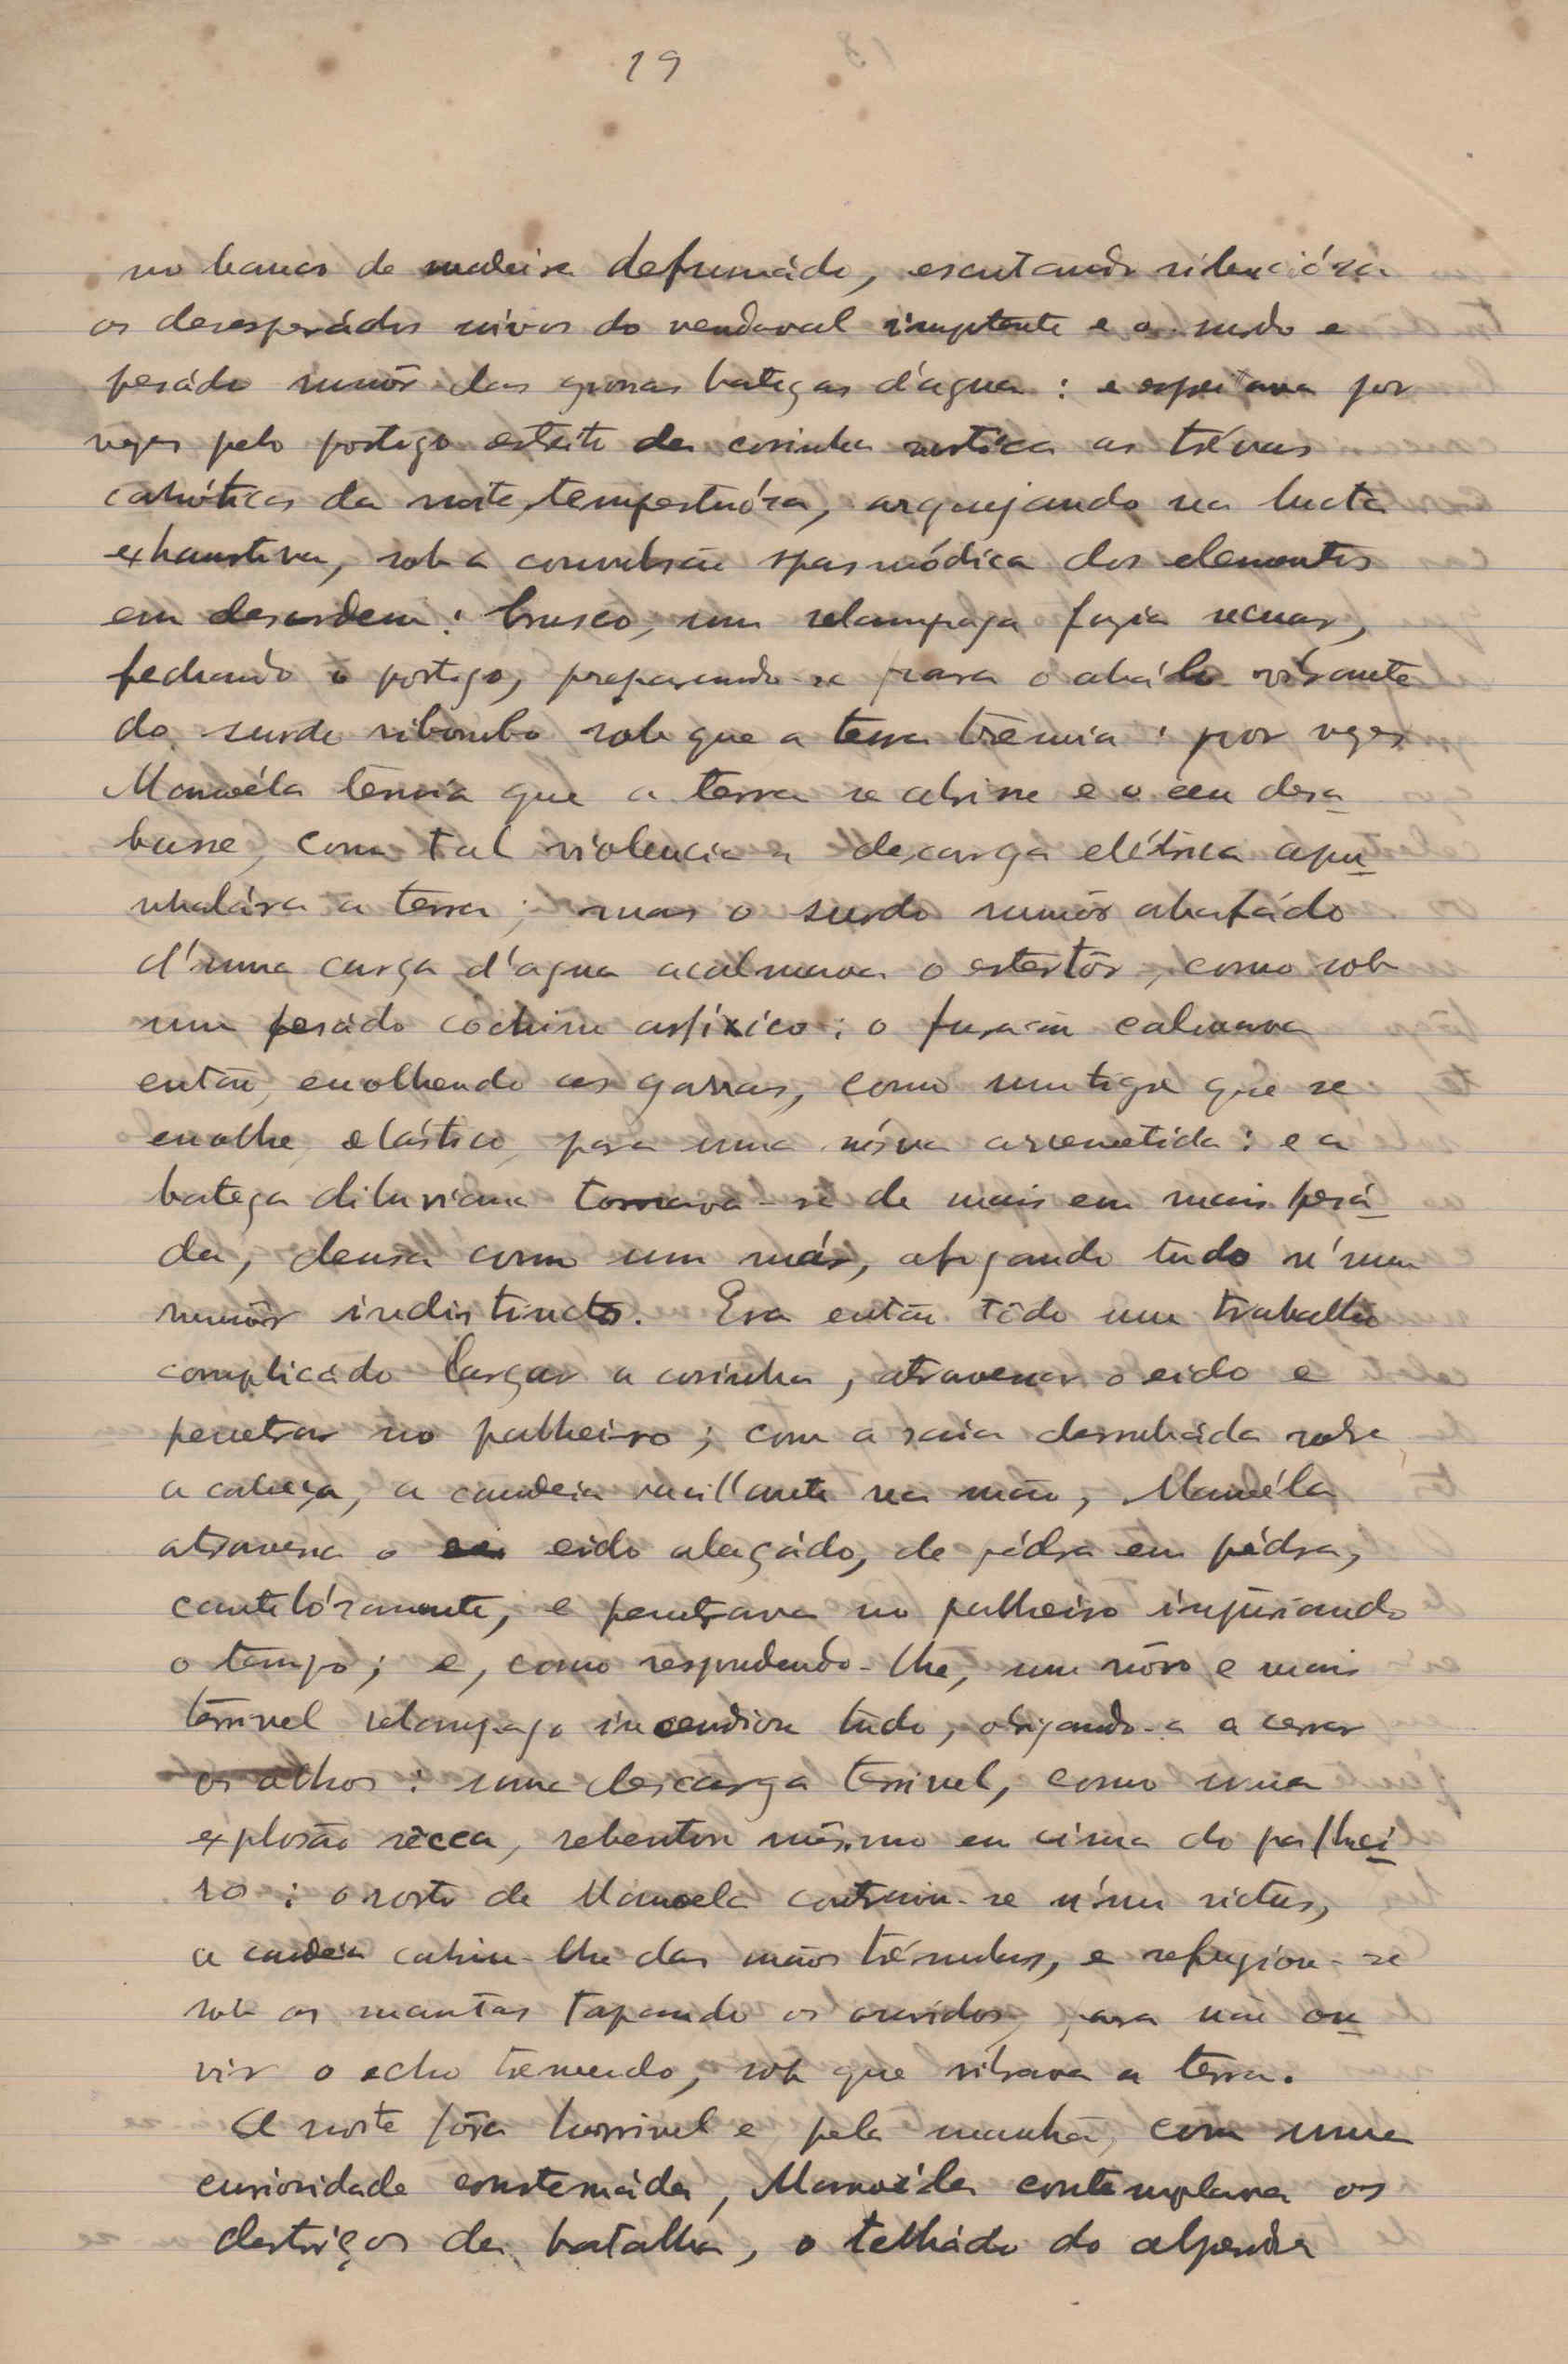 19
no banco de madeira defumádo, escutando silencióza
os desesperádos uivos do vendaval impotente e o surdo e
pesádo rumôr das grossas bategas d'agua : e espreitava por
vezes pelo postigo estreito da cosinha rustica as trévas
cahóticas da noite tempestuóza, arquejando na lucta
exhaustiva, sob a convulsão spasmódica dos elementos
em desordem : brusco, um relampago fazia recuar,
fechando o postigo, preparando-se para o abálo vibrante
do surdo ribombo sob que a terra trêmia : por vezes
Manoéla temia que a terra se abrisse e o ceu desa-
basse, com tal violencia a descarga elétrica apu-
nhalára a terra ; mas o surdo rumôr abafádo
d'uma carga d'agua acalmava o estertôr, como sob
um pesádo cochim asfíxico : o furacão calmava
então, encolhendo as garras, como um tigre que se
encolhe, elástico, para uma nóva arremetida : e a
batega diluviana tornava-se de mais em mais pesá-
da, densa como um már, afogando tudo n'um
rumôr indistincto. Era então tôdo um trabalho
complicado largar a cosinha, atravessar o eido e
penetrar no palheiro ; com a saia derrubáda sobre
a cabeça, a candeia vacillante na mão, Manoéla
atravessa o eido alagádo, de pédra em pédra,
cautelózamente, e penetrava no palheiro injuriando
o tempo ; e, como respondendo-lhe, um nôvo e mais
terrivel relampago incendiou tudo, obrigando-a a cerrar
os olhos : uma descarga terrivel, como uma
explosão sêcca, rebentou mêsmo em cima do palhei-
ro : o rosto de Manoela contraiu-se n'um rictus,
a candeia cahiu-lhe das mãos trémulas, e refugiou-se
sob as mantas tapando os ouvidos, para não ou-
vir o echo tremendo, sob que vibrava a terra.
A noite fôra horrivel e pela manhã, com uma
curiosidade consternáda, Manoéla contemplava os
destróços da batalha, o telhádo do alpendre